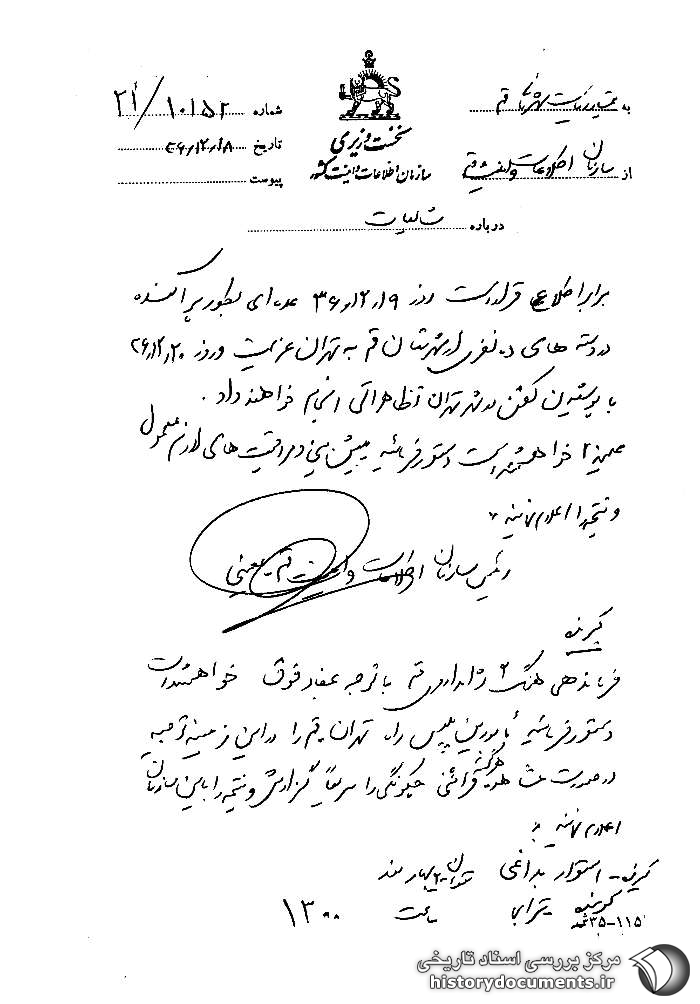 به ریاست شهربانی قم
شماره ۲۱/۱۰۱۵۲
نخست وزیری
سازمان اطلاعات و امنیت کشور
از سازمان اطلاعات و امنیت قم
تاریخ ۳۶/۱۲/۱۸
پیوست
درباره
برابر اطلاع قرار است روز ۳۶/۱۲/۱۹ عده‌ای بطور پراکنده
در دسته های ده نفری از شهرستان قم به تهران عزیمت و روز ۳۶/۱۲/۲۰
با پوشیدن کفن در شهر تهران تظاهراتی انجام خواهند داد.
علیهذا خواهشمند است دستور فرمائید پیش بینی و مراقبت های لازم معمول
و نتیجه را اعلام نمایند
رئیس سازمان اطلاعات و امنیت قم - معینی
گیرنده
فرماندهی هنگ ژاندارمری قم با توجه بمفاد فوق خواهشمند است
دستور فرمائید مامورین پلیس راه تهران قم را در این زمینه توجیه
در صورت مشاهده هرگونه قرائنی چگونگی را سریعا گزارش و نتیجه را باین سازمان
اعلام نمایند
گیرنده - استوار بداغی
گوینده ترابی ساعت ۱۳۰۰
۳۵-۱۱۵
مرکز بررسی اسناد تاریخی
historydocuments.ir